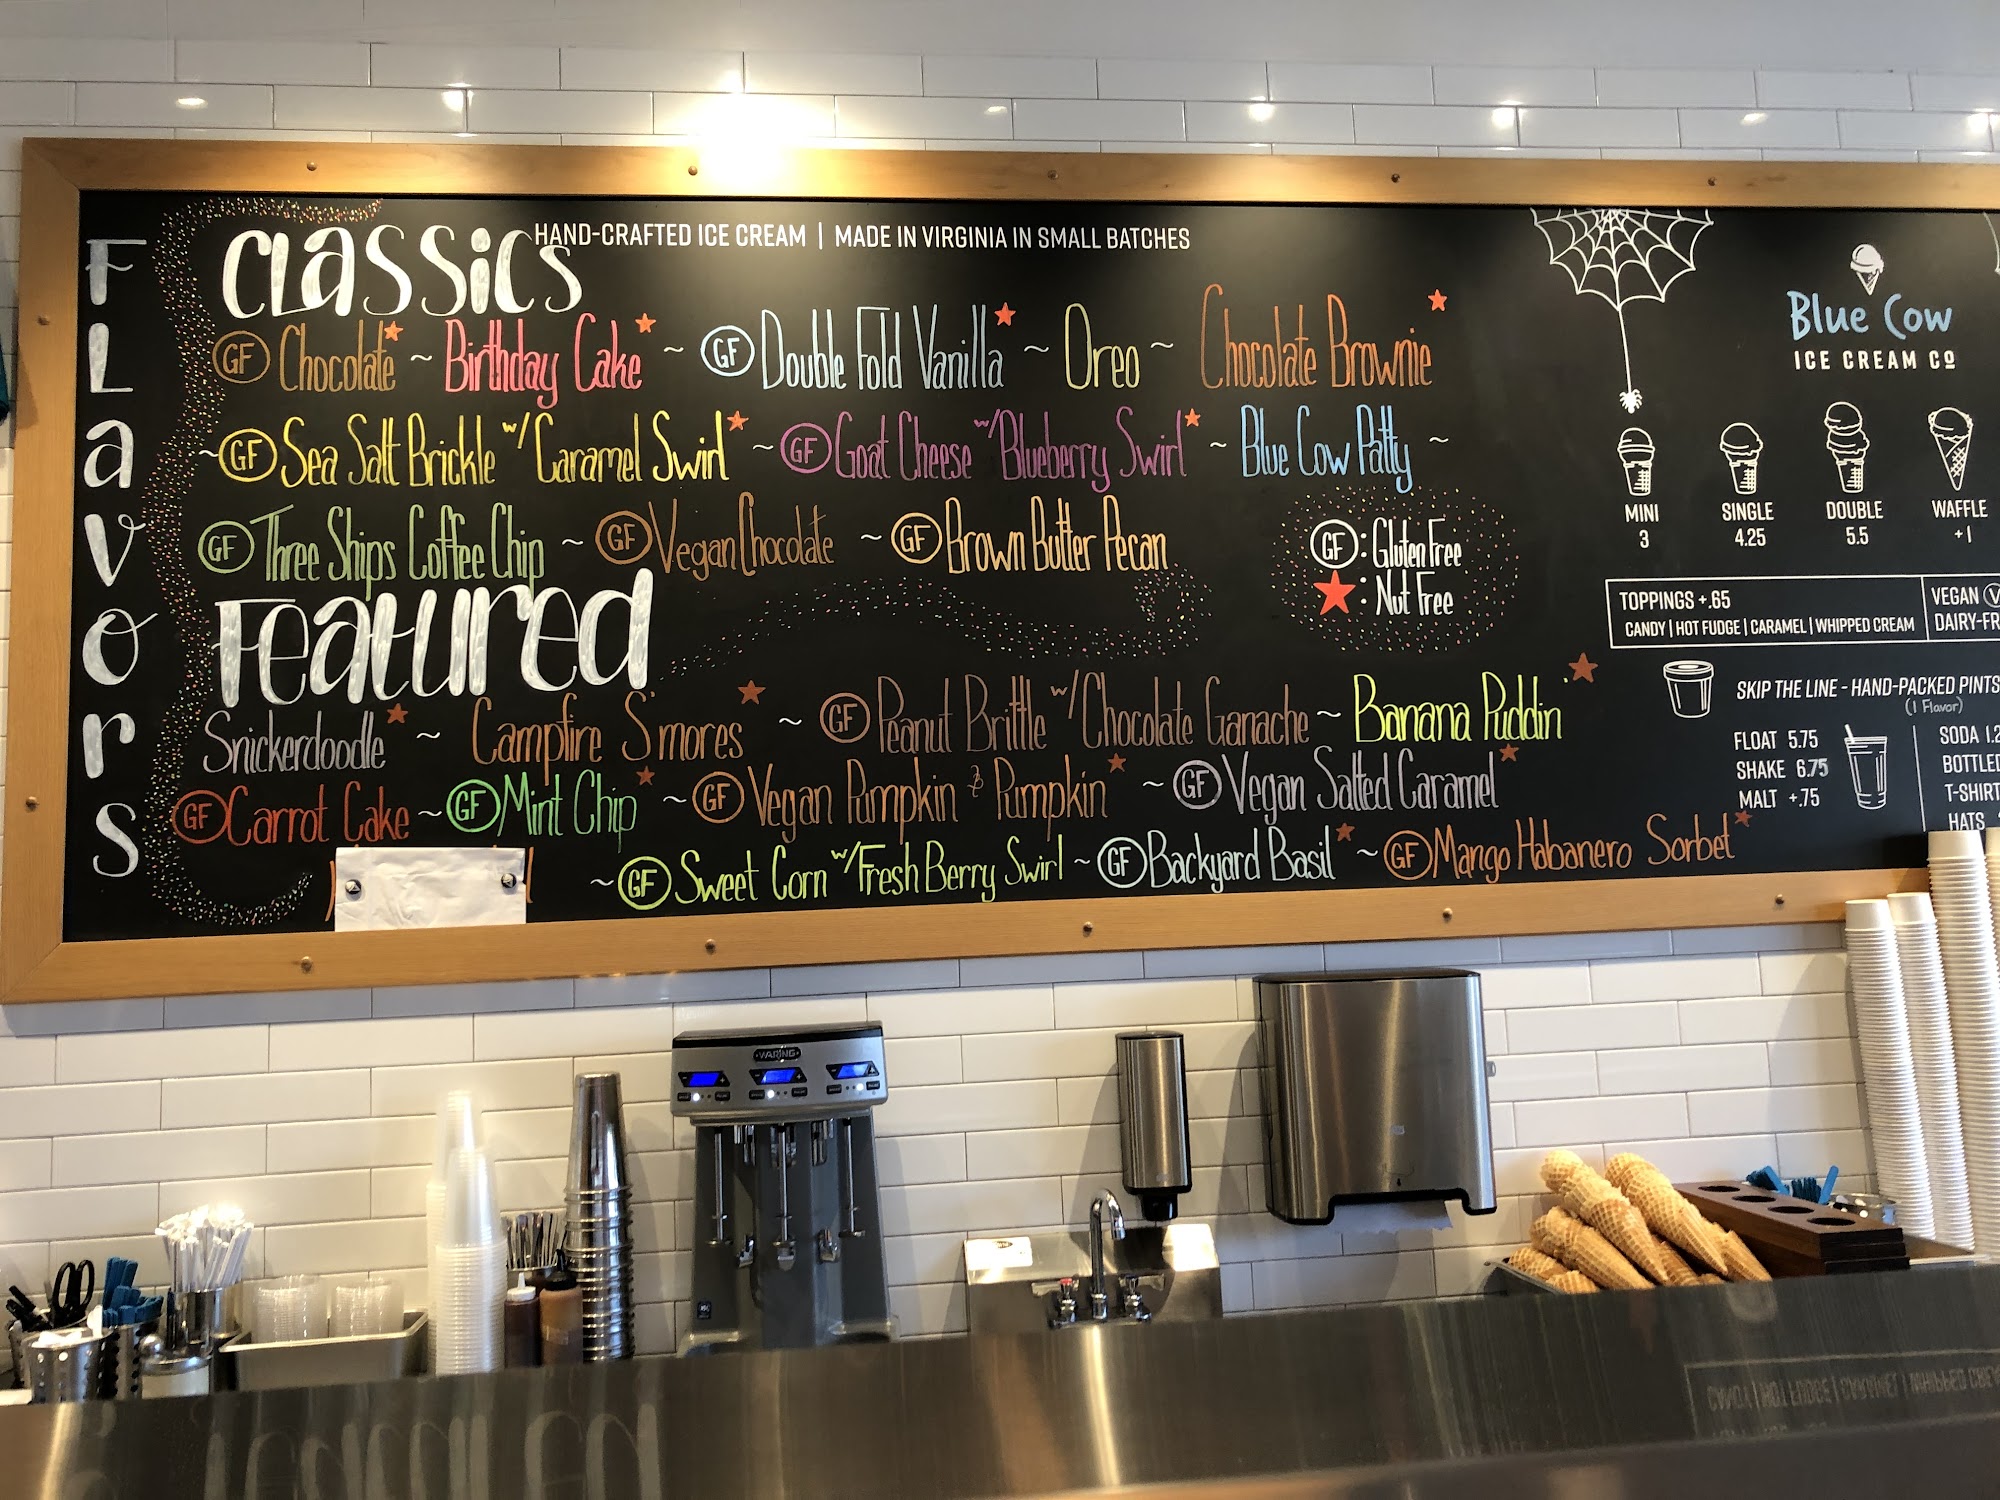 Flavors
Classics
HAND-CRAFTED ICE CREAM | MADE IN VIRGINIA IN SMALL BATCHES
GF Chocolate ~ Birthday Cake ~ GF Double Fold Vanilla ~ Oreo ~ Chocolate Brownie
~ GF Sea Salt Brickle w/ Caramel Swirl ~ GF Goat Cheese w/ Blueberry Swirl ~ Blue Cow Patty ~
GF Three Ships Coffee Chip ~ GF Vegan Chocolate ~ GF Brown Butter Pecan
GF : Gluten Free
★ : Nut Free
Featured
Snickerdoodle ~ Campfire S'mores ~ GF Peanut Brittle w/ Chocolate Ganache ~ Banana Puddin'
GF Carrot Cake ~ GF Mint Chip ~ GF Vegan Pumpkin & Pumpkin ~ GF Vegan Salted Caramel
~ GF Sweet Corn w/ Fresh Berry Swirl ~ GF Backyard Basil ~ GF Mango Habanero Sorbet
Blue Cow
ICE CREAM CO
MINI
3
SINGLE
4.25
DOUBLE
5.5
WAFFLE
+1
TOPPINGS +.65
CANDY | HOT FUDGE | CARAMEL | WHIPPED CREAM
VEGAN V
DAIRY-FR
SKIP THE LINE - HAND-PACKED PINTS
(1 Flavor)
FLOAT 5.75
SHAKE 6.75
MALT +.75
SODA 1.2
BOTTLED
T-SHIRT
HATS
WARING